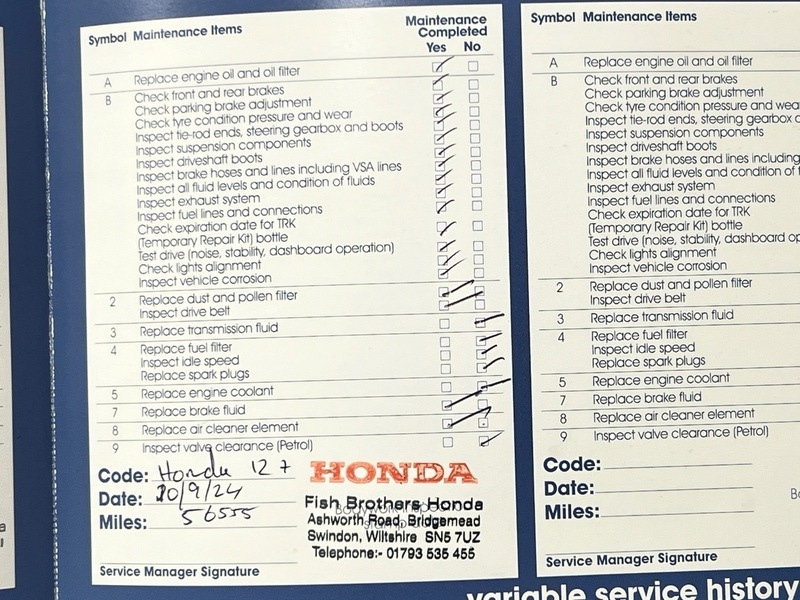 Symbol Maintenance Items
Maintenance Completed
Yes No
A Replace engine oil and oil filter
B Check front and rear brakes
Check parking brake adjustment
Check tyre condition pressure and wear
Inspect tie-rod ends, steering gearbox and boots
Inspect suspension components
Inspect driveshaft boots
Inspect brake hoses and lines including VSA lines
Inspect all fluid levels and condition of fluids
Inspect exhaust system
Inspect fuel lines and connections
Check expiration date for TRK
(Temporary Repair Kit) bottle
Test drive (noise, stability, dashboard operation)
Check lights alignment
Inspect vehicle corrosion
2 Replace dust and pollen filter
Inspect drive belt
3 Replace transmission fluid
4 Replace fuel filter
Inspect idle speed
Replace spark plugs
5 Replace engine coolant
7 Replace brake fluid
8 Replace air cleaner element
9 Inspect valve clearance (Petrol)
Code: Honda 127
Date: 20/9/24
Miles: 56555
HONDA
Fish Brothers Honda
Ashworth Road, Bridgemead
Swindon, Wiltshire SN5 7UZ
Telephone:- 01793 535 455
Service Manager Signature
Symbol Maintenance Items
A Replace engine oil and oil filter
B Check front and rear brakes
Check parking brake adjustment
Check tyre condition pressure and wea
Inspect tie-rod ends, steering gearbox
Inspect suspension components
Inspect driveshaft boots
Inspect brake hoses and lines including
Inspect all fluid levels and condition of
Inspect exhaust system
Inspect fuel lines and connections
Check expiration date for TRK
(Temporary Repair Kit) bottle
Test drive (noise, stability, dashboard op
Check lights alignment
Inspect vehicle corrosion
2 Replace dust and pollen filter
Inspect drive belt
3 Replace transmission fluid
4 Replace fuel filter
Inspect idle speed
Replace spark plugs
5 Replace engine coolant
7 Replace brake fluid
8 Replace air cleaner element
9 Inspect valve clearance (Petrol)
Code:
Date:
Miles:
Service Manager Signature
variable service history